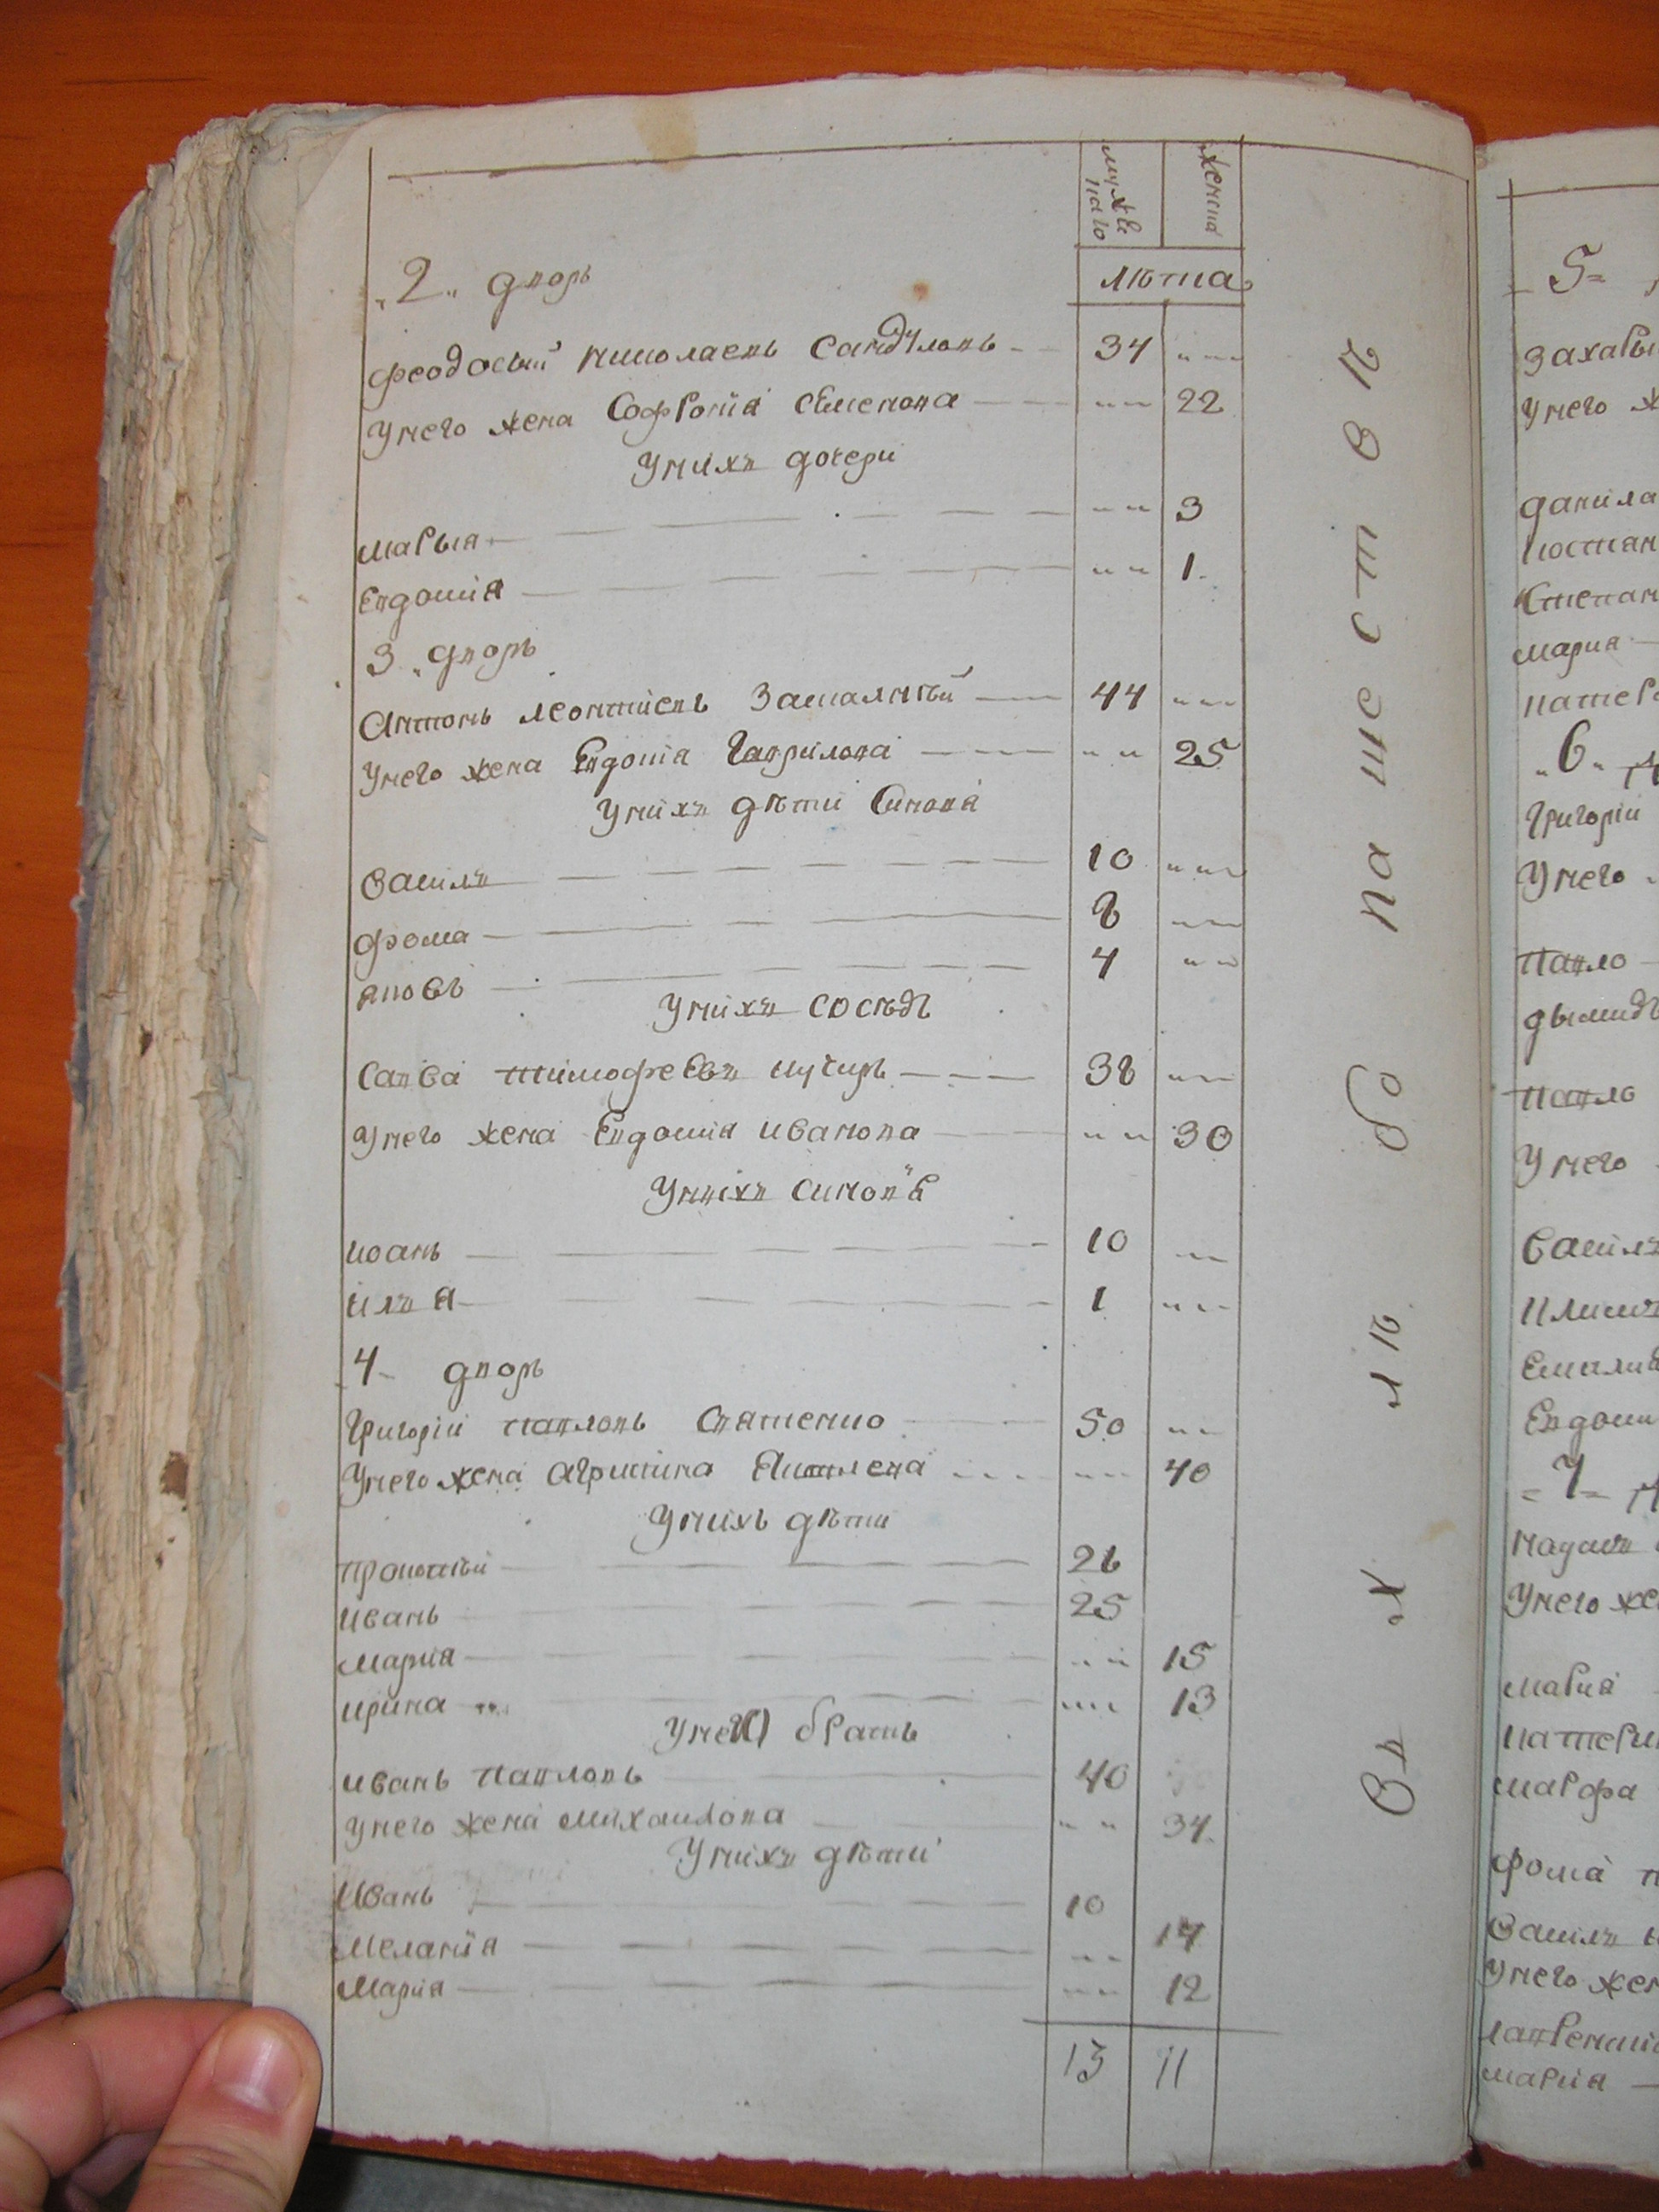 мужескаго
женска
лѣта
„2„ дворъ
Феодосый Николаевъ Сандуловъ 34
у него жена Софронія Семенова 22
у нихъ дочери
Марыя 3
Евдокія 1
3 дворъ
Антонъ Леонтіевъ 44
у него жена Евдокія Гаврилова 25
у нихъ дѣти синова
Василъ 10
Фома 8
Яковъ 4
у нихъ сосѣдъ
Савва Тимофеевъ 38
у него жена Евдокія Иванова 30
у нихъ синовъя
Иванъ 10
Илъя 1
4 дворъ
Григорій Павловъ Святенко 50
у него жена Агрипина 40
у нихъ дѣти
Прокопый 26
Иванъ 25
Марія 15
Ирина 13
у него братъ
Иванъ Павловъ 40
у него жена Михаилова 34
у нихъ дѣти
Иванъ 10
Меланія 17
Марія 12
13 11
5
Захары
у него ж
Данила
Костан
Степан
Мария
Катер
„6„
Григорій
у него
Павло
Павло
у него
Василъ
Евдоки
7
у него же
Мария
Катери
Марфа
Фома
Василъ
у него жен
Мария